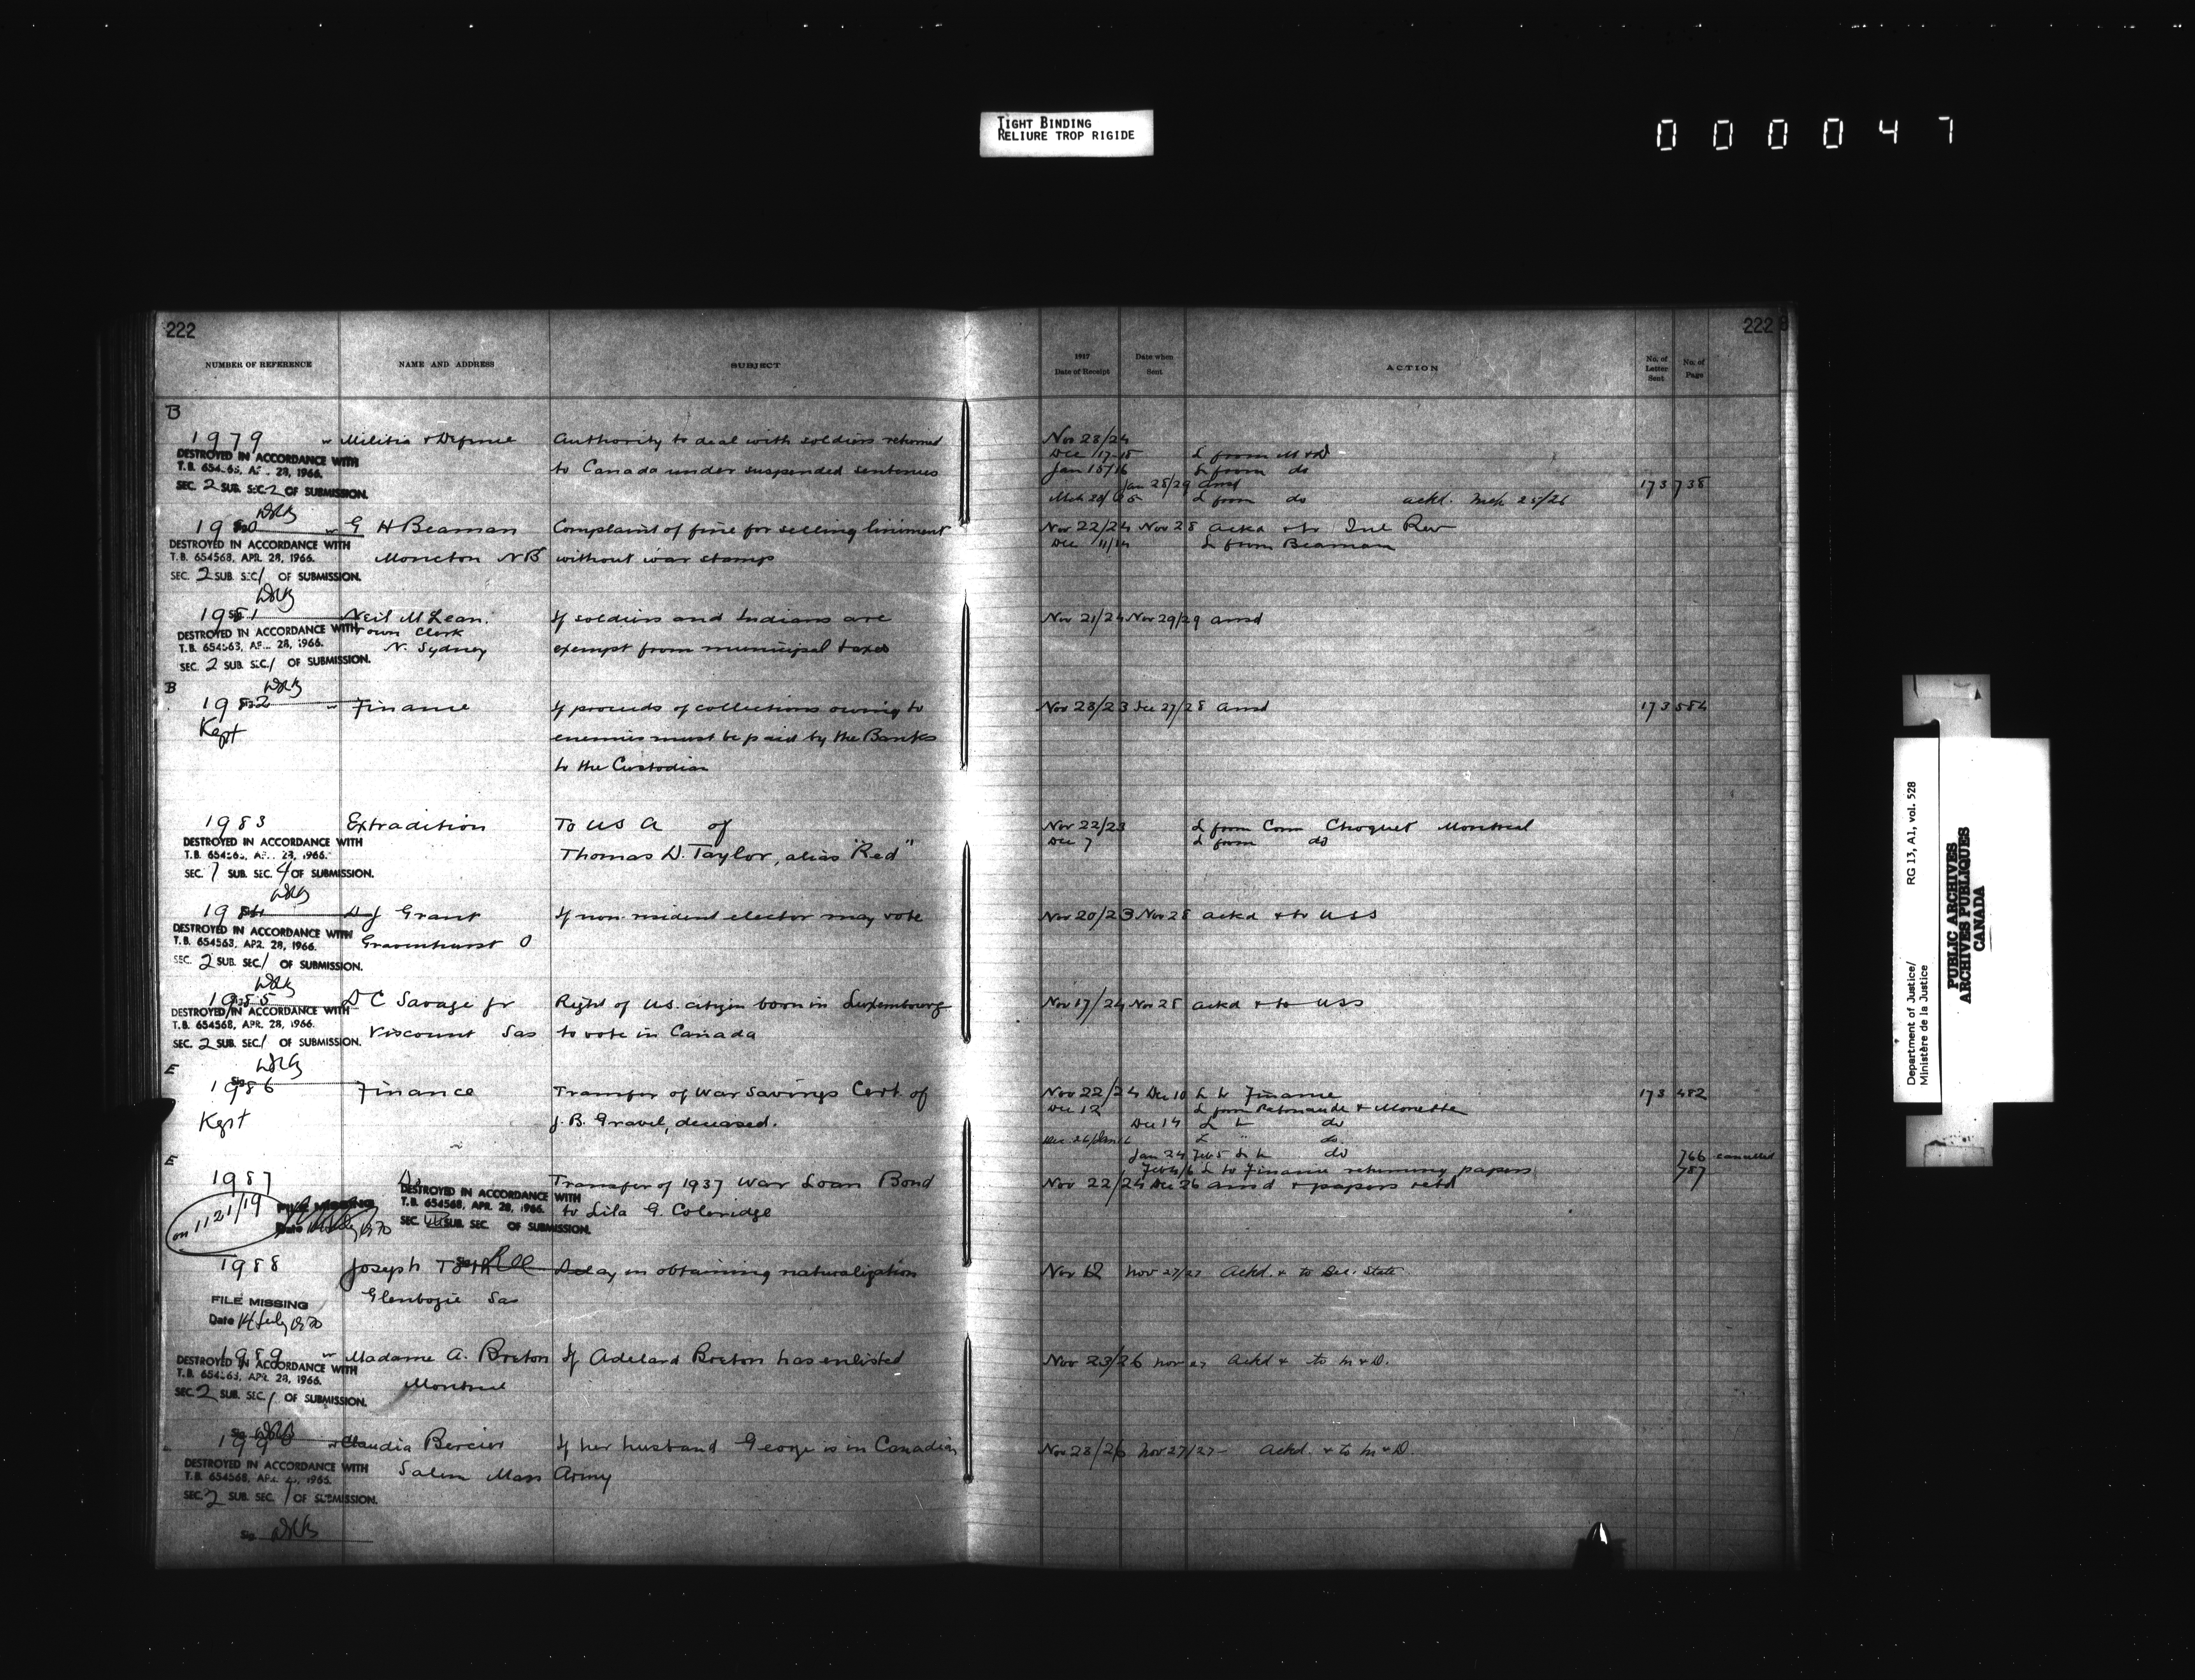 TIGHT BINDING
RELIURE TROP RIGIDE
000047
222
222
NUMBER OF REFERENCE NAME AND ADDRESS SUBJECT
1917 Date of Receipt Date when Sent ACTION No. of Letter Sent No. of Page
B
1979 Militia & Defence Authority to deal with soldiers returned
to Canada under suspended sentences
DESTROYED IN ACCORDANCE WITH
28, 1966.
SEC. 2 SUB. SEC. 2 OF SUBMISSION.
Nov 28/24
Dec 17-18 L from M & D
Jan 15/16 L from do
Jan 28/29 ansd 173 738
L from do ackd. Mch 25/26
1980 G H Beaman Complaint of fine for selling liniment
Moncton NB without war stamps
DESTROYED IN ACCORDANCE WITH
T.B. 654568, APR. 28, 1966.
SEC. 2 SUB. SEC 1 OF SUBMISSION.
Nov 22/24 Nov 28 ackd & to Inl Rev
Dec 11/14 L from Beaman
1981 Neil McLean. If soldiers and Indians are
Town Clerk
N. Sydney exempt from municipal taxes
DESTROYED IN ACCORDANCE WITH
28, 1966.
SEC. 2 SUB. SEC. 1 OF SUBMISSION.
Nov 21/24 Nov 29/29 ansd
B
1982 Finance If proceeds of collections owing to
Kept enemies must be paid by the Banks
to the Custodian
Nov 23/23 Dec 27/28 ansd 173 584
1983 Extradition To USA of
Thomas D. Taylor, alias "Red"
DESTROYED IN ACCORDANCE WITH
28, 1966.
SEC. 7 SUB. SEC. 4 OF SUBMISSION.
Nov 22/23 L from Com Choquet Montreal
Dec 7 L from do
1984 D J Grant If non-resident elector may vote
Gravenhurst O
DESTROYED IN ACCORDANCE WITH
T.B. 654568, APR. 28, 1966.
SEC. 2 SUB. SEC. 1 OF SUBMISSION.
Nov 20/23 Nov 28 ackd & to USS
1985 D C Savage Jr Right of U.S. citizen born in Luxembourg
Viscount Sas to vote in Canada
DESTROYED IN ACCORDANCE WITH
T.B. 654568, APR. 28, 1966.
SEC. 2 SUB. SEC. 1 OF SUBMISSION.
Nov 17/24 Nov 28 ackd & to USS
E
1986 Finance Transfer of War Savings Cert. of
Kept J. B. Gravel, deceased.
Nov 22/24 Dec 10 L to Finance 173 482
Dec 12 L from Patenaude & Monette
Dec 14 L to do
L " do
Jan 24 Feb 5 L to do 766 cancelled
L to Finance returning papers 787
E
1987 Transfer of 1937 War Loan Bond
to Lila G. Coleridge
on 1121/19
FILE MISSING
DESTROYED IN ACCORDANCE WITH
T.B. 654568, APR. 28, 1966.
SUB. SEC. OF SUBMISSION.
Nov 22/24 Dec 26 ansd & papers retd
1988 Joseph Delay in obtaining naturalization
Glenbogie Sas
FILE MISSING
Date 14 July 1970
Nov 12 Nov 27/27 Ackd. & to Sec. State
1989 Madame A. Breton If Adelard Breton has enlisted
Montreal
DESTROYED IN ACCORDANCE WITH
APR. 28, 1966.
SEC. 2 SUB. SEC. 1 OF SUBMISSION.
Nov 23/26 Nov 27 Ackd & to M & D.
1990 Claudia Bercier If her husband George is in Canadian
Salem Mass Army
DESTROYED IN ACCORDANCE WITH
T.B. 654568,
SEC. 2 SUB. SEC. 1 OF SUBMISSION.
Nov 23/26 Nov 27/27 Ackd. & to M & D.
Department of Justice/
Ministère de la Justice
RG 13, A1, vol. 528
PUBLIC ARCHIVES
ARCHIVES PUBLIQUES
CANADA